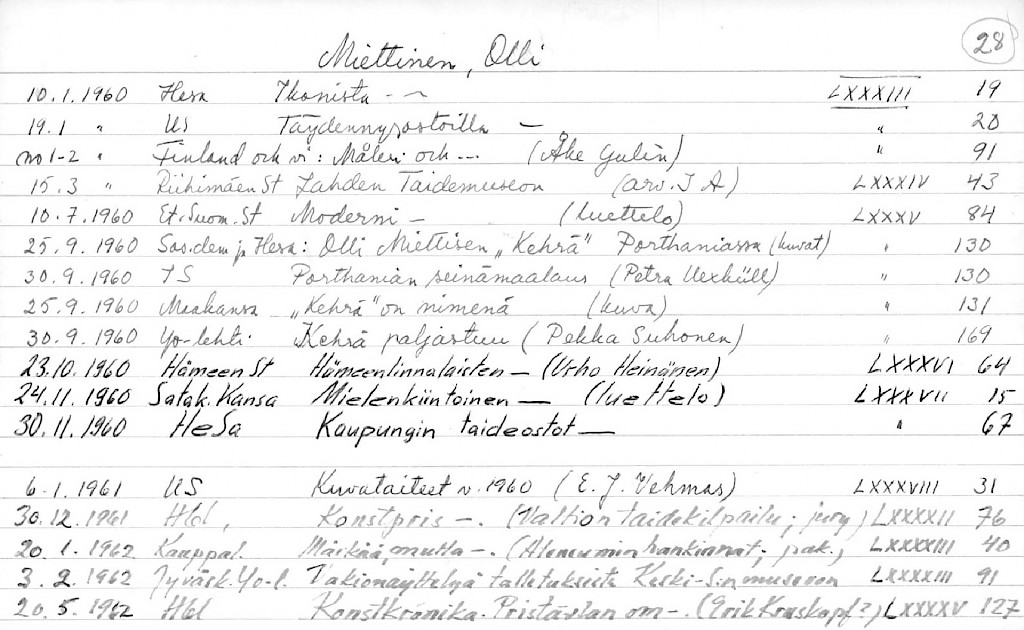 28
Miettinen, Olli
10.1.1960 Hesa Ikonista -- LXXXIII 19
19.1 " US Täydennysostoilla — " 20
no 1-2 " Finland och vi: Måleri och --- (Åke Gulin) " 91
15.3 " Riihimäen St Lahden Taidemuseon (arv. I A) LXXXIV 43
10.7.1960 Et.Suom.St Moderni — (luettelo) LXXXV 84
25.9.1960 Sos.dem ja Hesa: Olli Miettisen „Kehrä" Porthaniassa (kuvat) " 130
30.9.1960 TS Porthanian seinämaalaus (Petra Uexküll) " 130
25.9.1960 Maakansa „Kehrä" on nimenä (kuva) " 131
30.9.1960 Yo-lehti Kehrä paljastuu (Pekka Suhonen) " 169
23.10.1960 Hämeen St Hämeenlinnalaisten — (Urho Heinänen) LXXXVI 64
24.11.1960 Satak.Kansa Mielenkiintoinen — (luettelo) LXXXVII 15
30.11.1960 HeSa Kaupungin taideostot — " 67
6.1.1961 US Kuvataiteet v.1960 (E.J. Vehmas) LXXXVIII 31
30.12.1961 Hbl, Konstpris —. (Valtion taidekilpailu; jury) LXXXXII 76
20.1.1962 Kauppal. Märkää, mutta —. (Ateneumin hankinnat; pak.) LXXXXIII 40
3.2.1962 Jyväsk.Yo-l. Vakionäyttelyä talletuksista Keski-S:n museoon LXXXXIII 91
20.5.1962 Hbl Konstkrönika. Pristävlan om —. (Erik Kruskopf?) LXXXXV 127